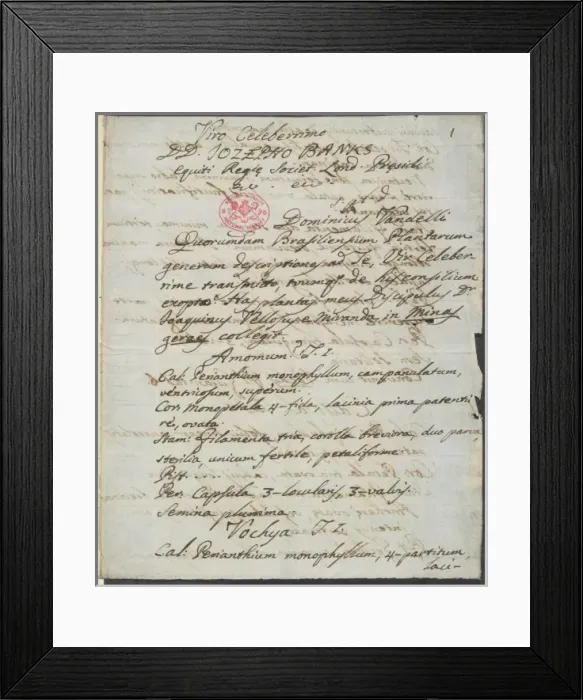 Viro Celeberrimo
1
DD. JOZZEPHO BANKS
equiti Regiæ Societ. Lond. Præsidi
&c. &c.
Dominicus Vandelli
Quorumdam Brasiliensium Plantarum
generum descriptiones ad Te, Vir Celeber
rime transmitto, tuumq. de his consilium
exopto. Has plantas meus Discipulus Dr.
Joaquinus Vellosus e Miranda in Minas
geraes collegit.
Amomum? T. I.
Cal: Perianthium monophyllum, campanulatum,
ventricosum, superum.
Cor: Monopetala 4-fida, lacinia prima patenti
re, ovata.
Stam: filamenta tria, corolla breviora, duo parva
sterilia, unicum fertile, petaliforme.
Pist.
Per. Capsula, 3-locularis, 3-valvis.
Semina plurima.
Vochya T. I.
Cal: Perianthium monophyllum, 4-partitum,
laci-